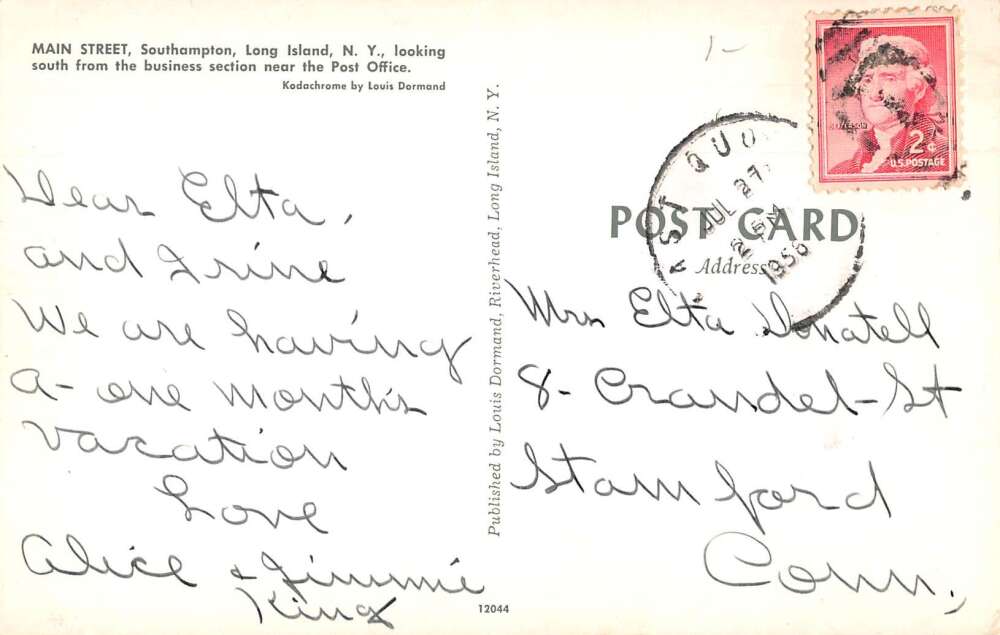 MAIN STREET, Southampton, Long Island, N. Y., looking
south from the business section near the Post Office.
Kodachrome by Louis Dormand
Dear Elta,
and Irine
We are having
a-one month's
vacation
Love
Alice + Jimmie
King
Published by Louis Dormand, Riverhead, Long Island, N. Y.
12044
1-
JEFFERSON
2¢
U.S. POSTAGE
AST QUO
JUL 27
2 PM
1956
POST CARD
Address
Mrs Elta Donatell
8- Crandel-St
Stamford
Conn,